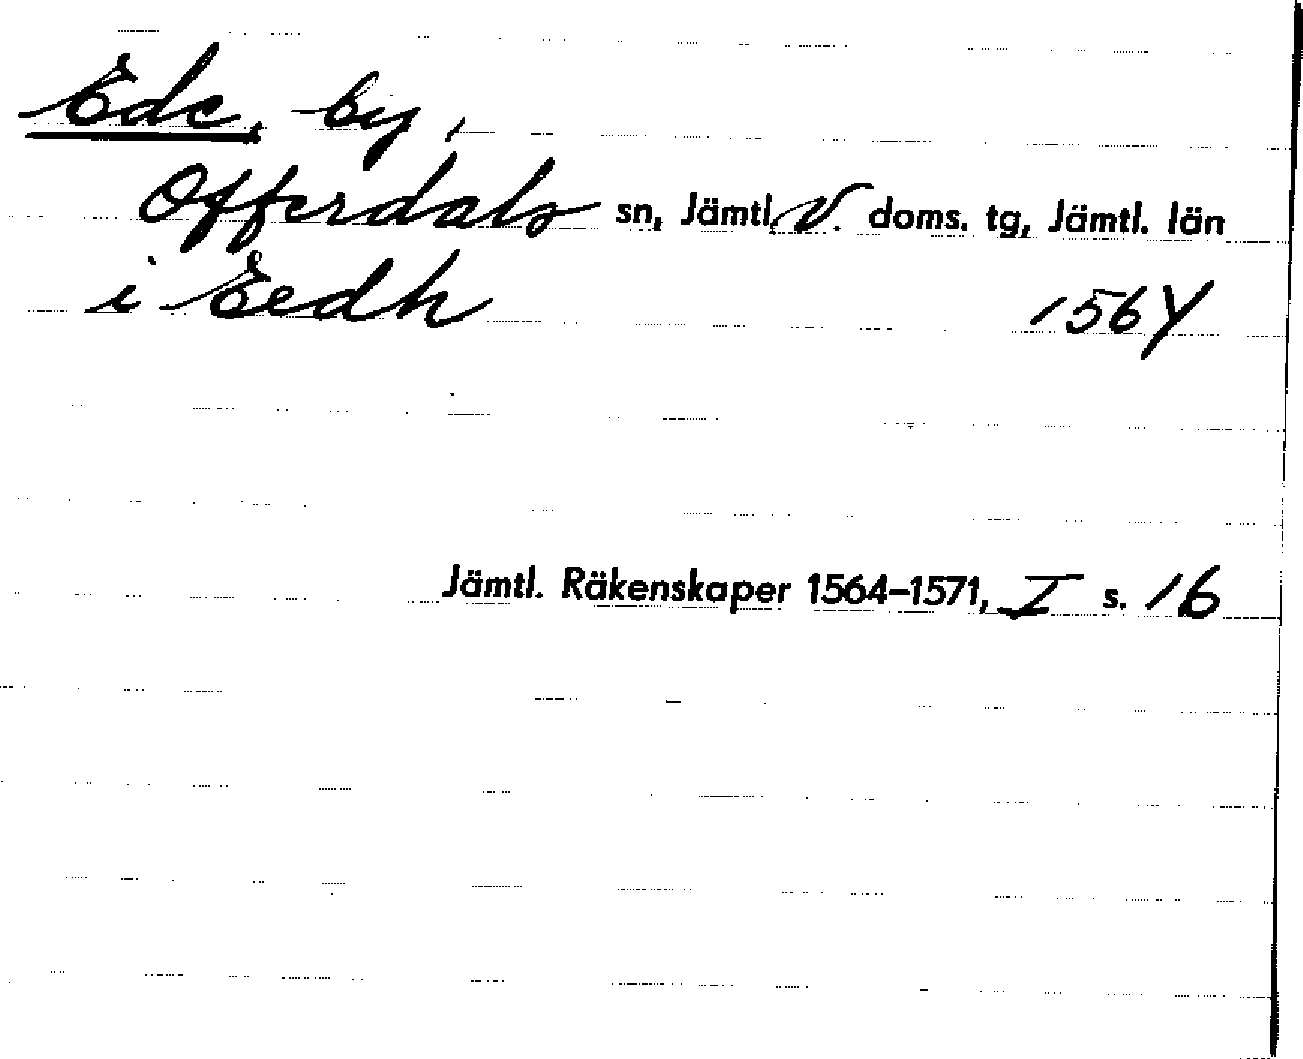 Ede, by,
Offerdals sn, Jämtl. V. doms. tg, Jämtl. län
i Eedh 1564
Jämtl. Räkenskaper 1564–1571, I s. 16